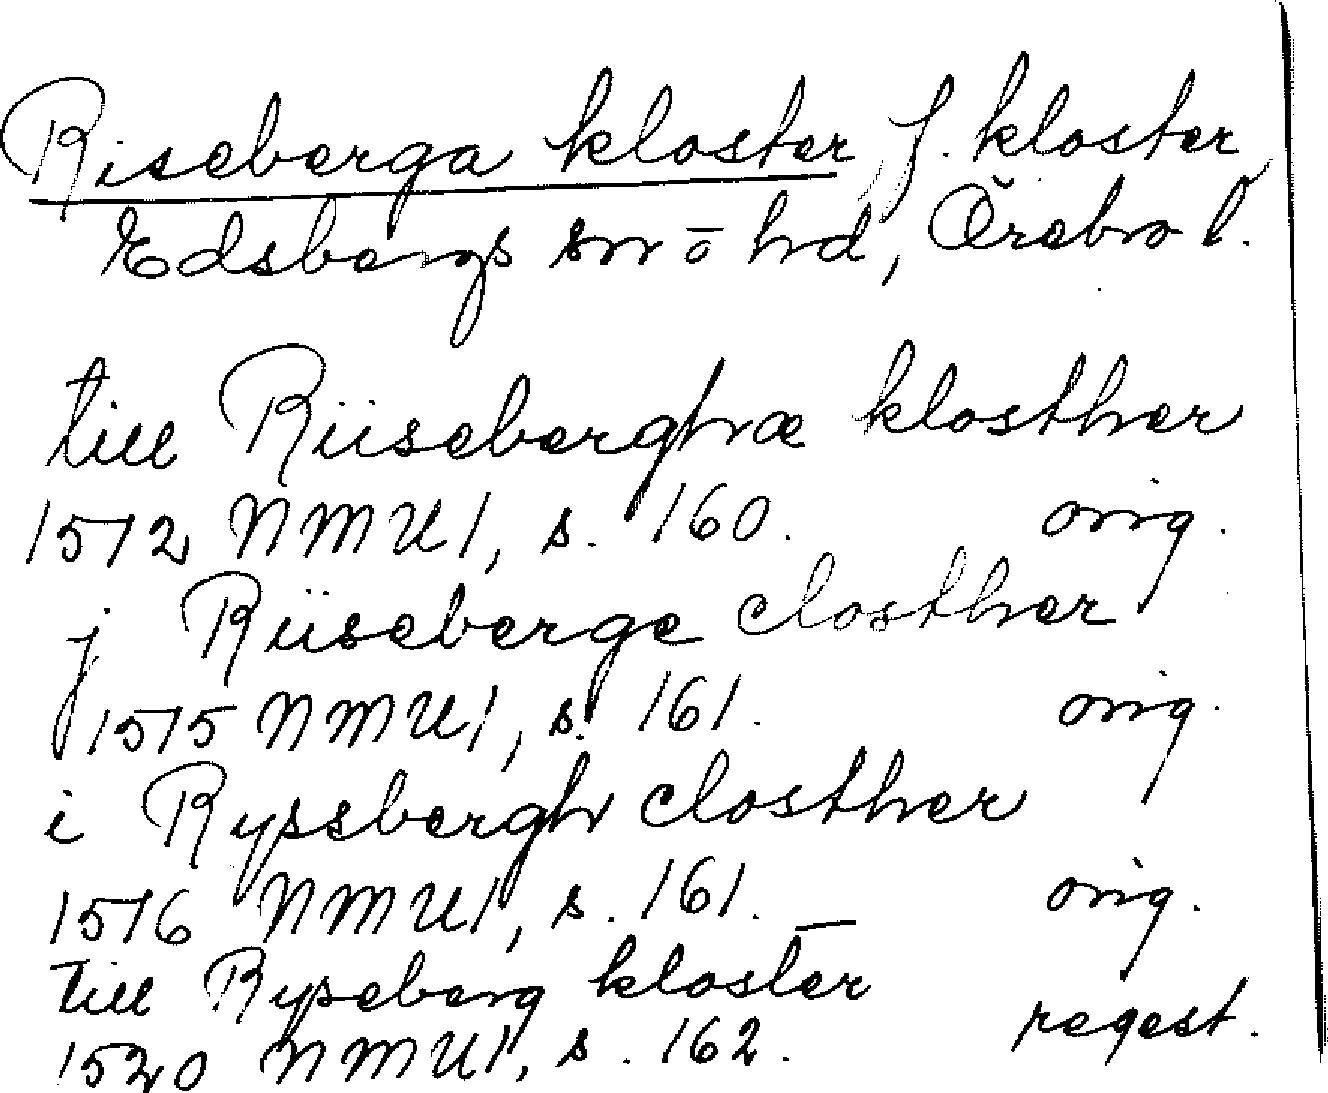 Riseberga kloster f. kloster,
Edsbergs sn o hd, Örebro l.
till Riiseberghæ klosther
1512 NMU1, s. 160. orig.
j Riiseberge closther
1515 NMU1, s. 161. orig.
i Ryssbergh closther
1516 NMU1, s. 161. orig.
till Ryseberg kloster
1520 NMU1, s. 162. regest.